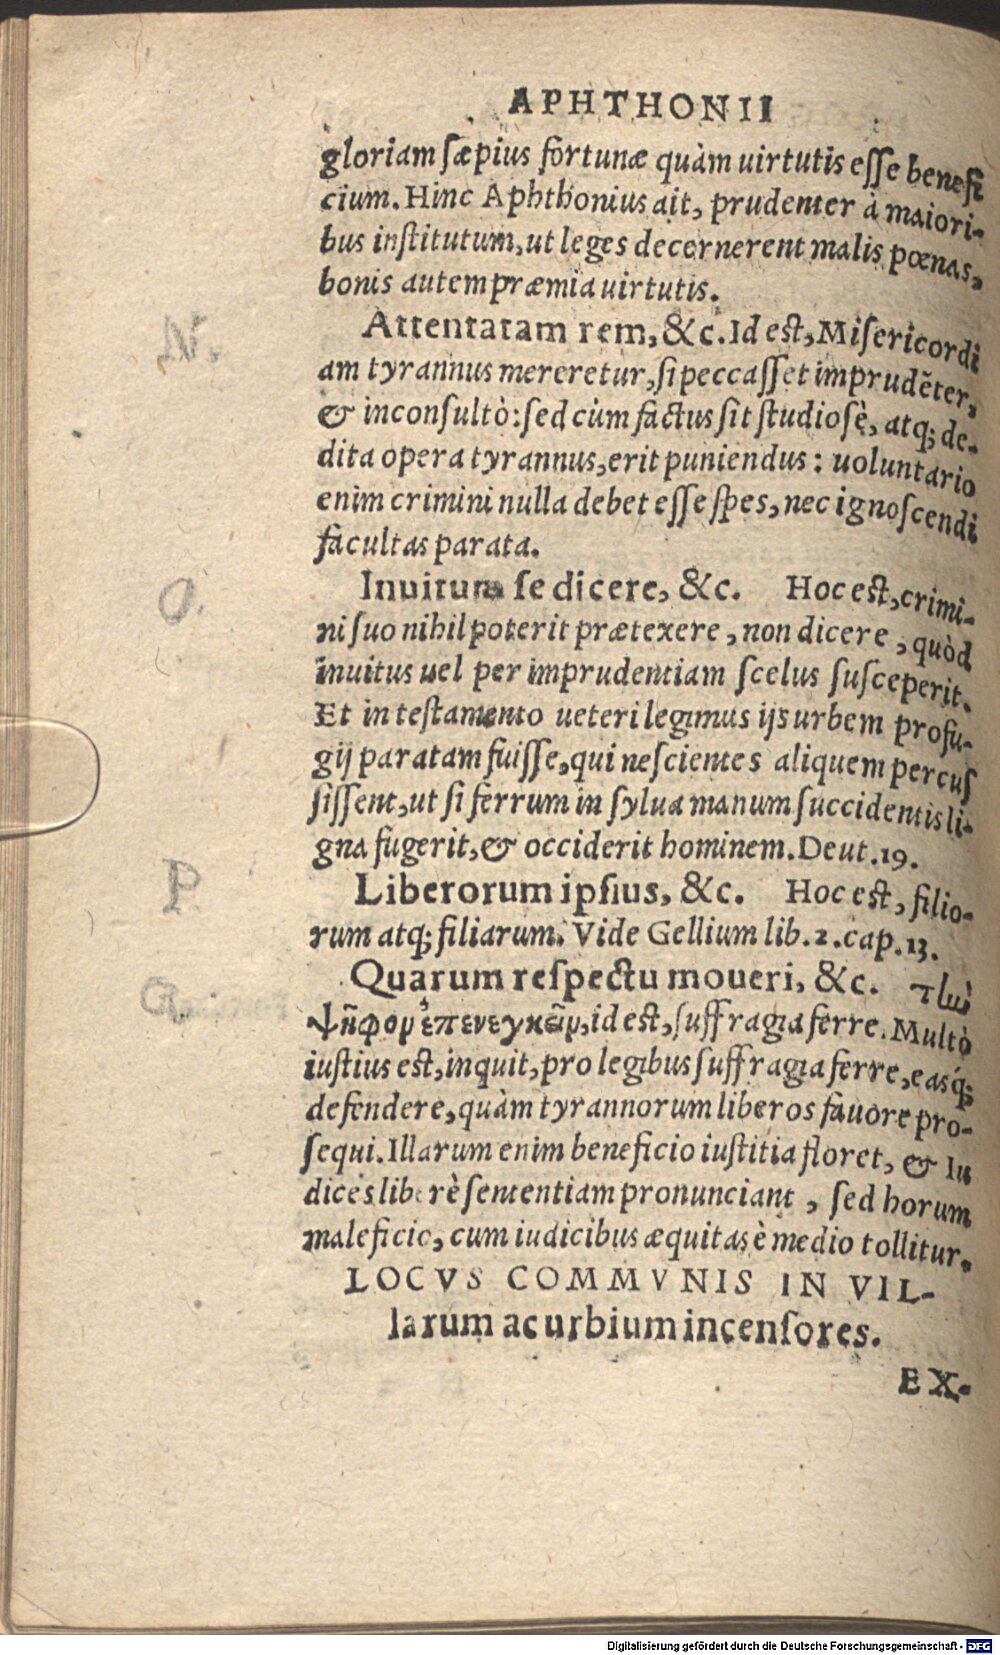 APHTHONII
gloriam sæpius fortunæ quàm uirtutis esse benefi
cium. Hinc Aphthonius ait, prudenter à maiori-
bus institutum, ut leges decernerent malis pœnas,
bonis autem præmia uirtutis.
N.
Attentatam rem, &c. Id est, Misericordi
am tyrannus mereretur, si peccasset imprudẽter,
& inconsultò: sed cùm factus sit studiosè, atq; de-
dita opera tyrannus, erit puniendus: uoluntario
enim crimini nulla debet esse spes, nec ignoscendi
facultas parata.
O.
Inuitum se dicere, &c. Hoc est, crimi-
ni suo nihil poterit prætexere, non dicere, quòd
inuitus uel per imprudentiam scelus susceperit.
Et in testamento ueteri legimus ijs urbem profu-
gij paratam fuisse, qui nescientes aliquem percus
sissent, ut si ferrum in sylua manum succidentis li-
gna fugerit, & occiderit hominem. Deut. 19.
P
Liberorum ipsius, &c. Hoc est, filio-
rum atq; filiarum. Vide Gellium lib. 2. cap. 13.
Q.
Quarum respectu moueri, &c. τὴν
ψῆφον ἐπενεγκεῖν, id est, suffragia ferre. Multò
iustius est, inquit, pro legibus suffragia ferre, easq́;
defendere, quàm tyrannorum liberos fauore pro-
sequi. Illarum enim beneficio iustitia floret, & Iu
dices liberè sententiam pronunciant, sed horum
maleficio, cum iudicibus æquitas è medio tollitur.
LOCVS COMMVNIS IN VIL-
larum ac urbium incensores.
EX-
Digitalisierung gefördert durch die Deutsche Forschungsgemeinschaft - DFG